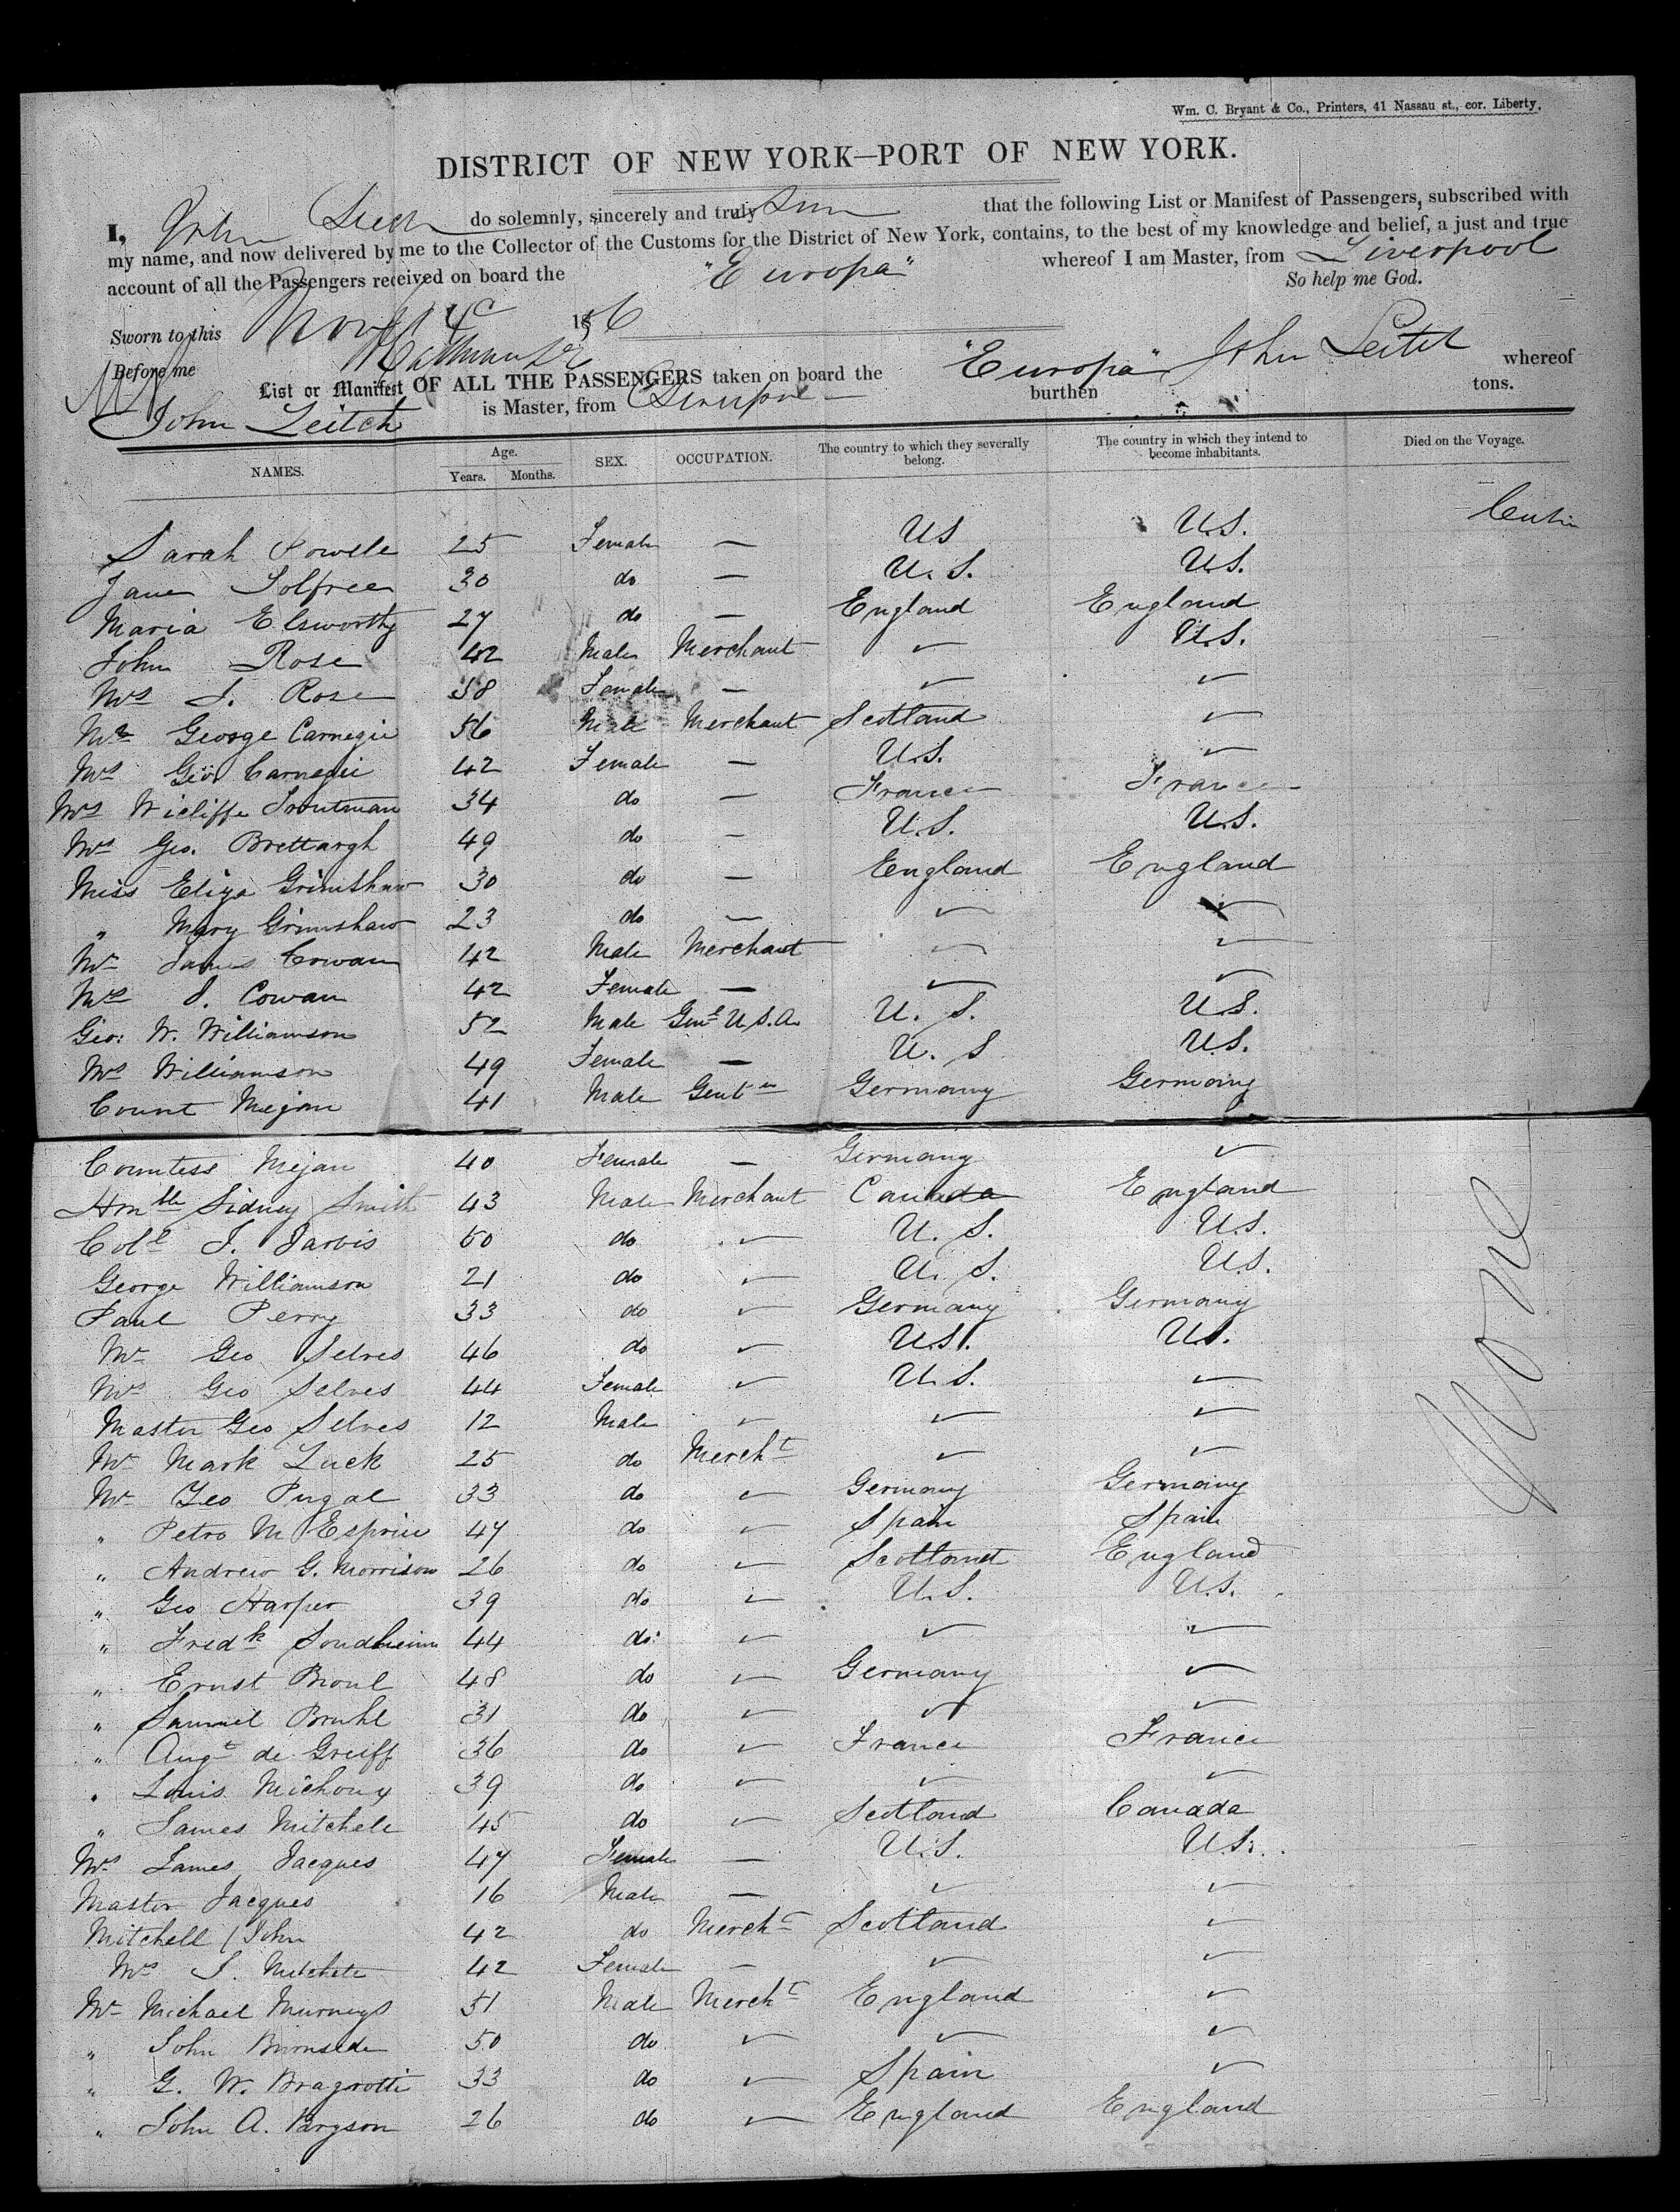 Wm. C. Bryant & Co., Printers, 41 Nassau st., cor. Liberty.
DISTRICT OF NEW YORK—PORT OF NEW YORK.
I, John Leitch do solemnly, sincerely and truly that the following List or Manifest of Passengers, subscribed with
my name, and now delivered by me to the Collector of the Customs for the District of New York, contains, to the best of my knowledge and belief, a just and true
account of all the Passengers received on board the "Europa" whereof I am Master, from Liverpool
So help me God.
Sworn to this Novr 186
Before me
List or Manifest OF ALL THE PASSENGERS taken on board the "Europa" John Leitch whereof
John Leitch is Master, from Liverpool burthen tons.
NAMES. Age. Years. Months. SEX. OCCUPATION. The country to which they severally belong. The country in which they intend to become inhabitants. Died on the Voyage.
Sarah Powell 25 Female — US U.S.
Jane Tolfree 30 do — U.S. U.S.
Maria Elsworthy 27 do — England England
John Rose 42 Male Merchant ✓ U.S.
Mrs J. Rose 38 Female — ✓ ✓
Mr George Carnegie 56 Male Merchant Scotland ✓
Mrs Geo Carnegie 42 Female — U.S. ✓
Mrs Wicliffe Troutman 34 do — France France
Mrs Geo. Brettargh 49 do — U.S. U.S.
Miss Eliza Grimshaw 30 do — England England
" Mary Grimshaw 23 do — ✓ ✓
Mr James Cowan 42 Male Merchant ✓ ✓
Mrs J. Cowan 42 Female — ✓ ✓
Geo: W. Williamson 52 Male Genl U.S.A. U.S. U.S.
Mrs Williamson 49 Female — U.S U.S.
Count Mejan 41 Male Gentn Germany Germany
Countess Mejan 40 Female — Germany ✓
Honble Sidney Smith 43 Male Merchant Canada England
Coll J. Jarvis 50 do ✓ U.S. U.S.
George Williamson 21 do ✓ U.S. U.S.
Paul Perry 33 do ✓ Germany Germany
Mr Geo Selves 46 do ✓ U.S. U.S.
Mrs Geo Selves 44 Female ✓ U.S. ✓
Master Geo Selves 12 Male ✓ ✓ ✓
Mr Mark Luck 25 do Mercht ✓ ✓
Mr Geo Pugal 33 do ✓ Germany Germany
" Petro M Espriu 47 do ✓ Spain Spain
" Andrew G. Morrison 26 do ✓ Scotland England
" Geo Harper 39 do ✓ U.S. U.S.
" Fredk Sondheim 44 do: ✓ ✓ ✓
" Ernst 48 do ✓ Germany ✓
" Samuel Bruhl 31 do ✓ ✓ ✓
" Augt de Greiff 36 do ✓ France France
" Louis Michoux 39 do ✓ ✓ ✓
" James Mitchell 45 do ✓ Scotland Canada
Mrs James Jacques 47 Female — U.S. U.S.
Master Jacques 16 Male — ✓ ✓
Mitchell / John 42 do Mercht Scotland ✓
Mrs J. Mitchell 42 Female — ✓ ✓
Mr Michael 51 Male Mercht England ✓
" John Burnside 50 do ✓ ✓ ✓
" G. W. Bragiotti 33 do ✓ Spain ✓
" John A. 26 do ✓ England England
None